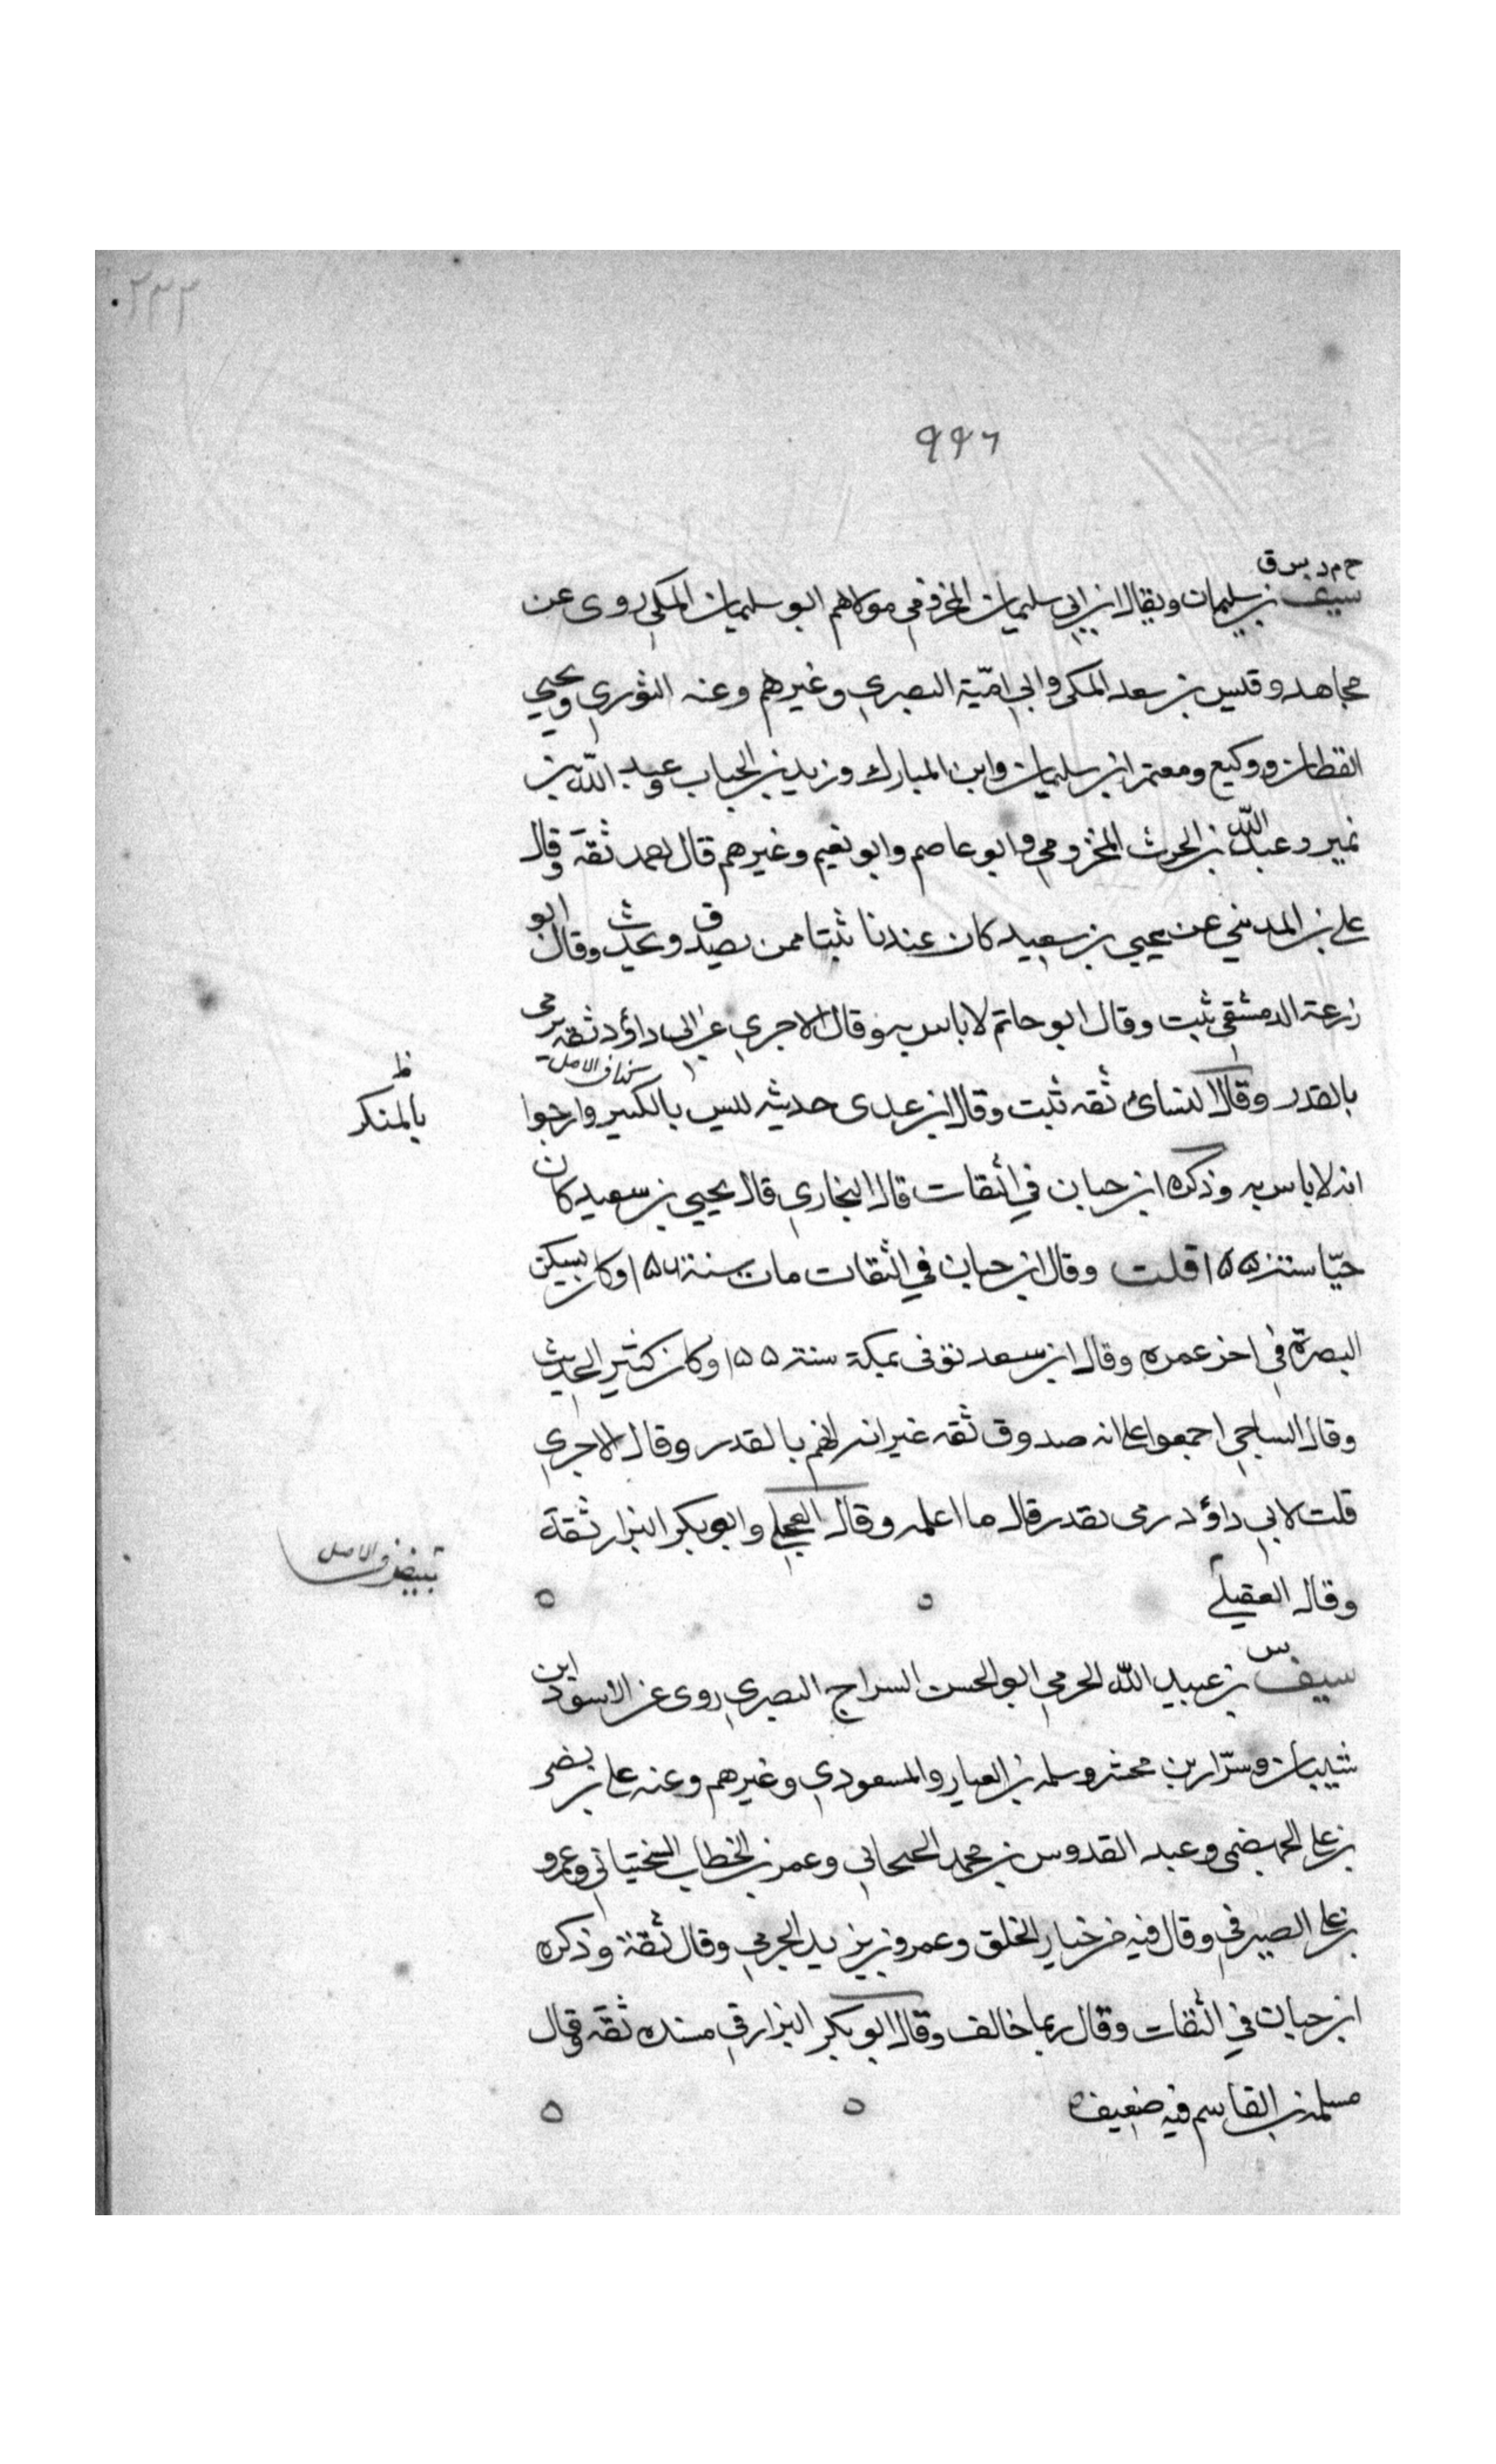 ٢٣٢
٩٩٦
خ م د س ق
سيف بن سليمان ويقال ابن ابي سليمان المخزومي مولاهم ابو سليمان المكي روى عن
مجاهد وقيس بن سعد المكي وابي امّية البصري وغيرهم وعنه الثوري ويحيى
القطان ووكيع ومعتمر ابن سليمان وابن المبارك وزيد بن الحباب وعبد الله بن
نمير وعبد الله بن الحرث المخزومي وابو عاصم وابو نعيم وغيرهم قال احمد ثقة وقال
علي بن المديني عن يحيى بن سعيد كان عندنا ثبتا ممن يصدق ويحدث وقال ابو
زرعة الدمشقي ثبت وقال ابو حاتم لا باس به وقال الاجري عن ابي داؤد ثقة يرمى
كذا في الاصل
بالقدر وقال النسائ ثقه ثبت وقال ابن عدى حديثه ليس بالكسير وارجوا
ظ
بالمنكر
انه لا باس به وذكره ابن حبان في الثقات قال البخاري قال يحيى بن سعيد كان
حيّا سنة ١٥٥ قلت وقال ابن حبان في الثقات مات سنة ١٥٦ وكان يسكن
البصرة في اخر عمره وقال ابن سعد توفى بمكة سنة ١٥٥ وكان كثير الحديث
وقال الساجي اجمعوا على انه صدوق ثقه غير انه اتهم بالقدر وقال الاجري
قلت لابي داؤد رمى بقدر قال ما اعلمه وقال العجلي وابو بكر البزار ثقة
وقال العقيلي
تبييض في الاصل
س
سيف بن عبيد الله الجرمي ابو الحسن السراج البصري روى عن الاسود ابن
شيبان وسرّار بن محشر وسلمه بن العيار والمسعودي وغيرهم وعنه علي بن نصر
بن علي الجهضمي وعبد القدوس بن محمد الحبحابي وعمر بن الخطاب السختياني وعمرو
بن علي الصيرفي وقال فيه من خيار الخلق وعمرو بن يزيد الجرمي وقال ثقة وذكره
ابن حبان في الثقات وقال ربما خالف وقال ابو بكر البزار في مسنده ثقه وقال
مسلمة بن القاسم فيه ضعيف